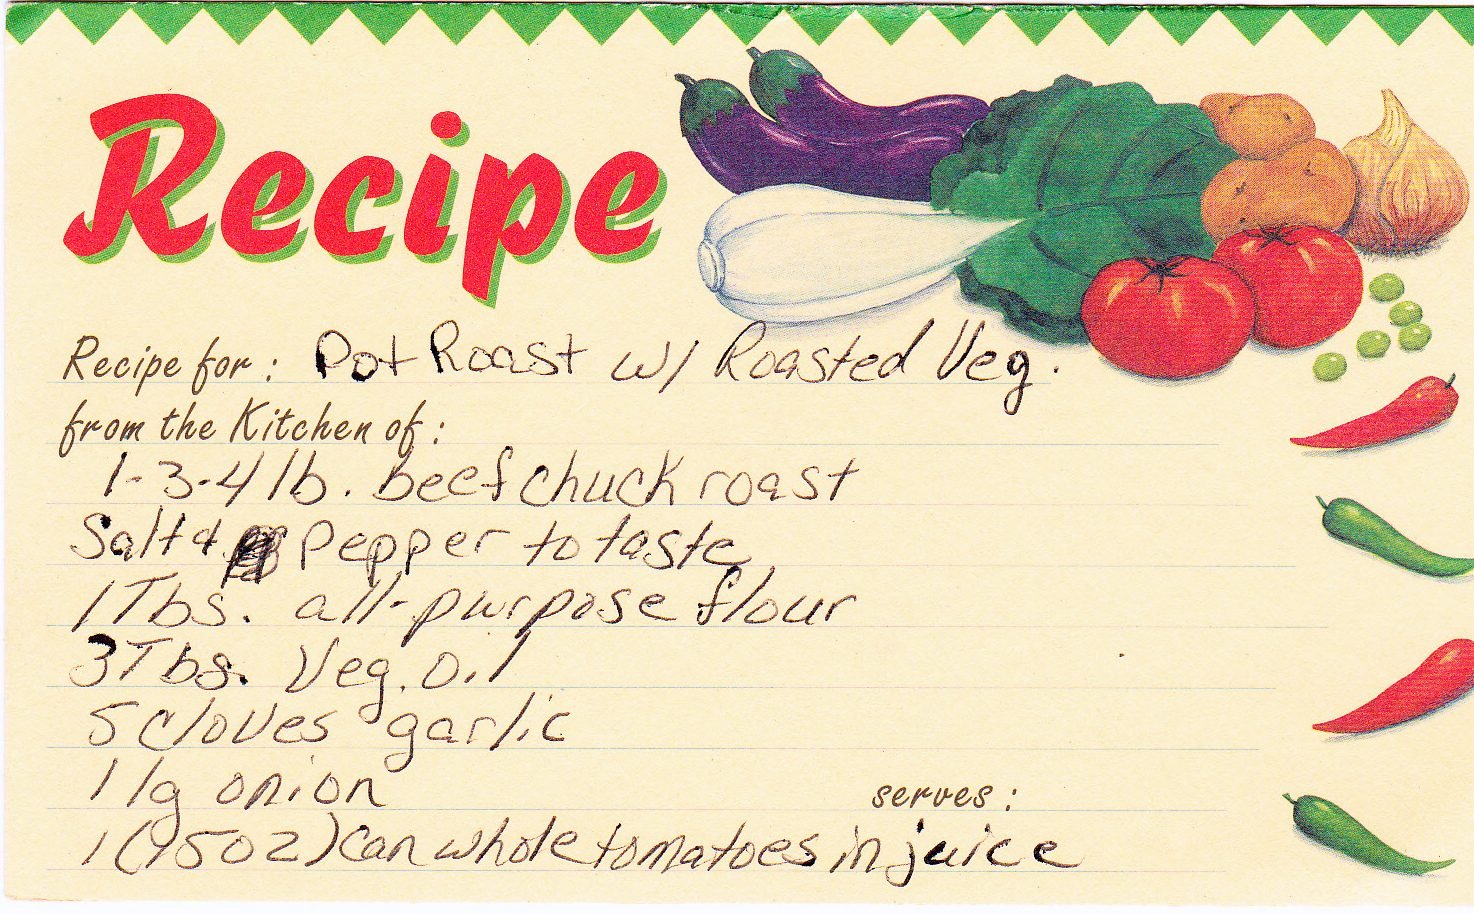 Recipe
Recipe for: Pot Roast w/ Roasted Veg.
from the Kitchen of:
1-3-4 lb. beef chuck roast
Salt & Pepper to taste
1 Tbs. all-purpose flour
3 Tbs. Veg. oil
5 cloves garlic
1 lg onion
serves:
1 (15oz) can whole tomatoes in juice